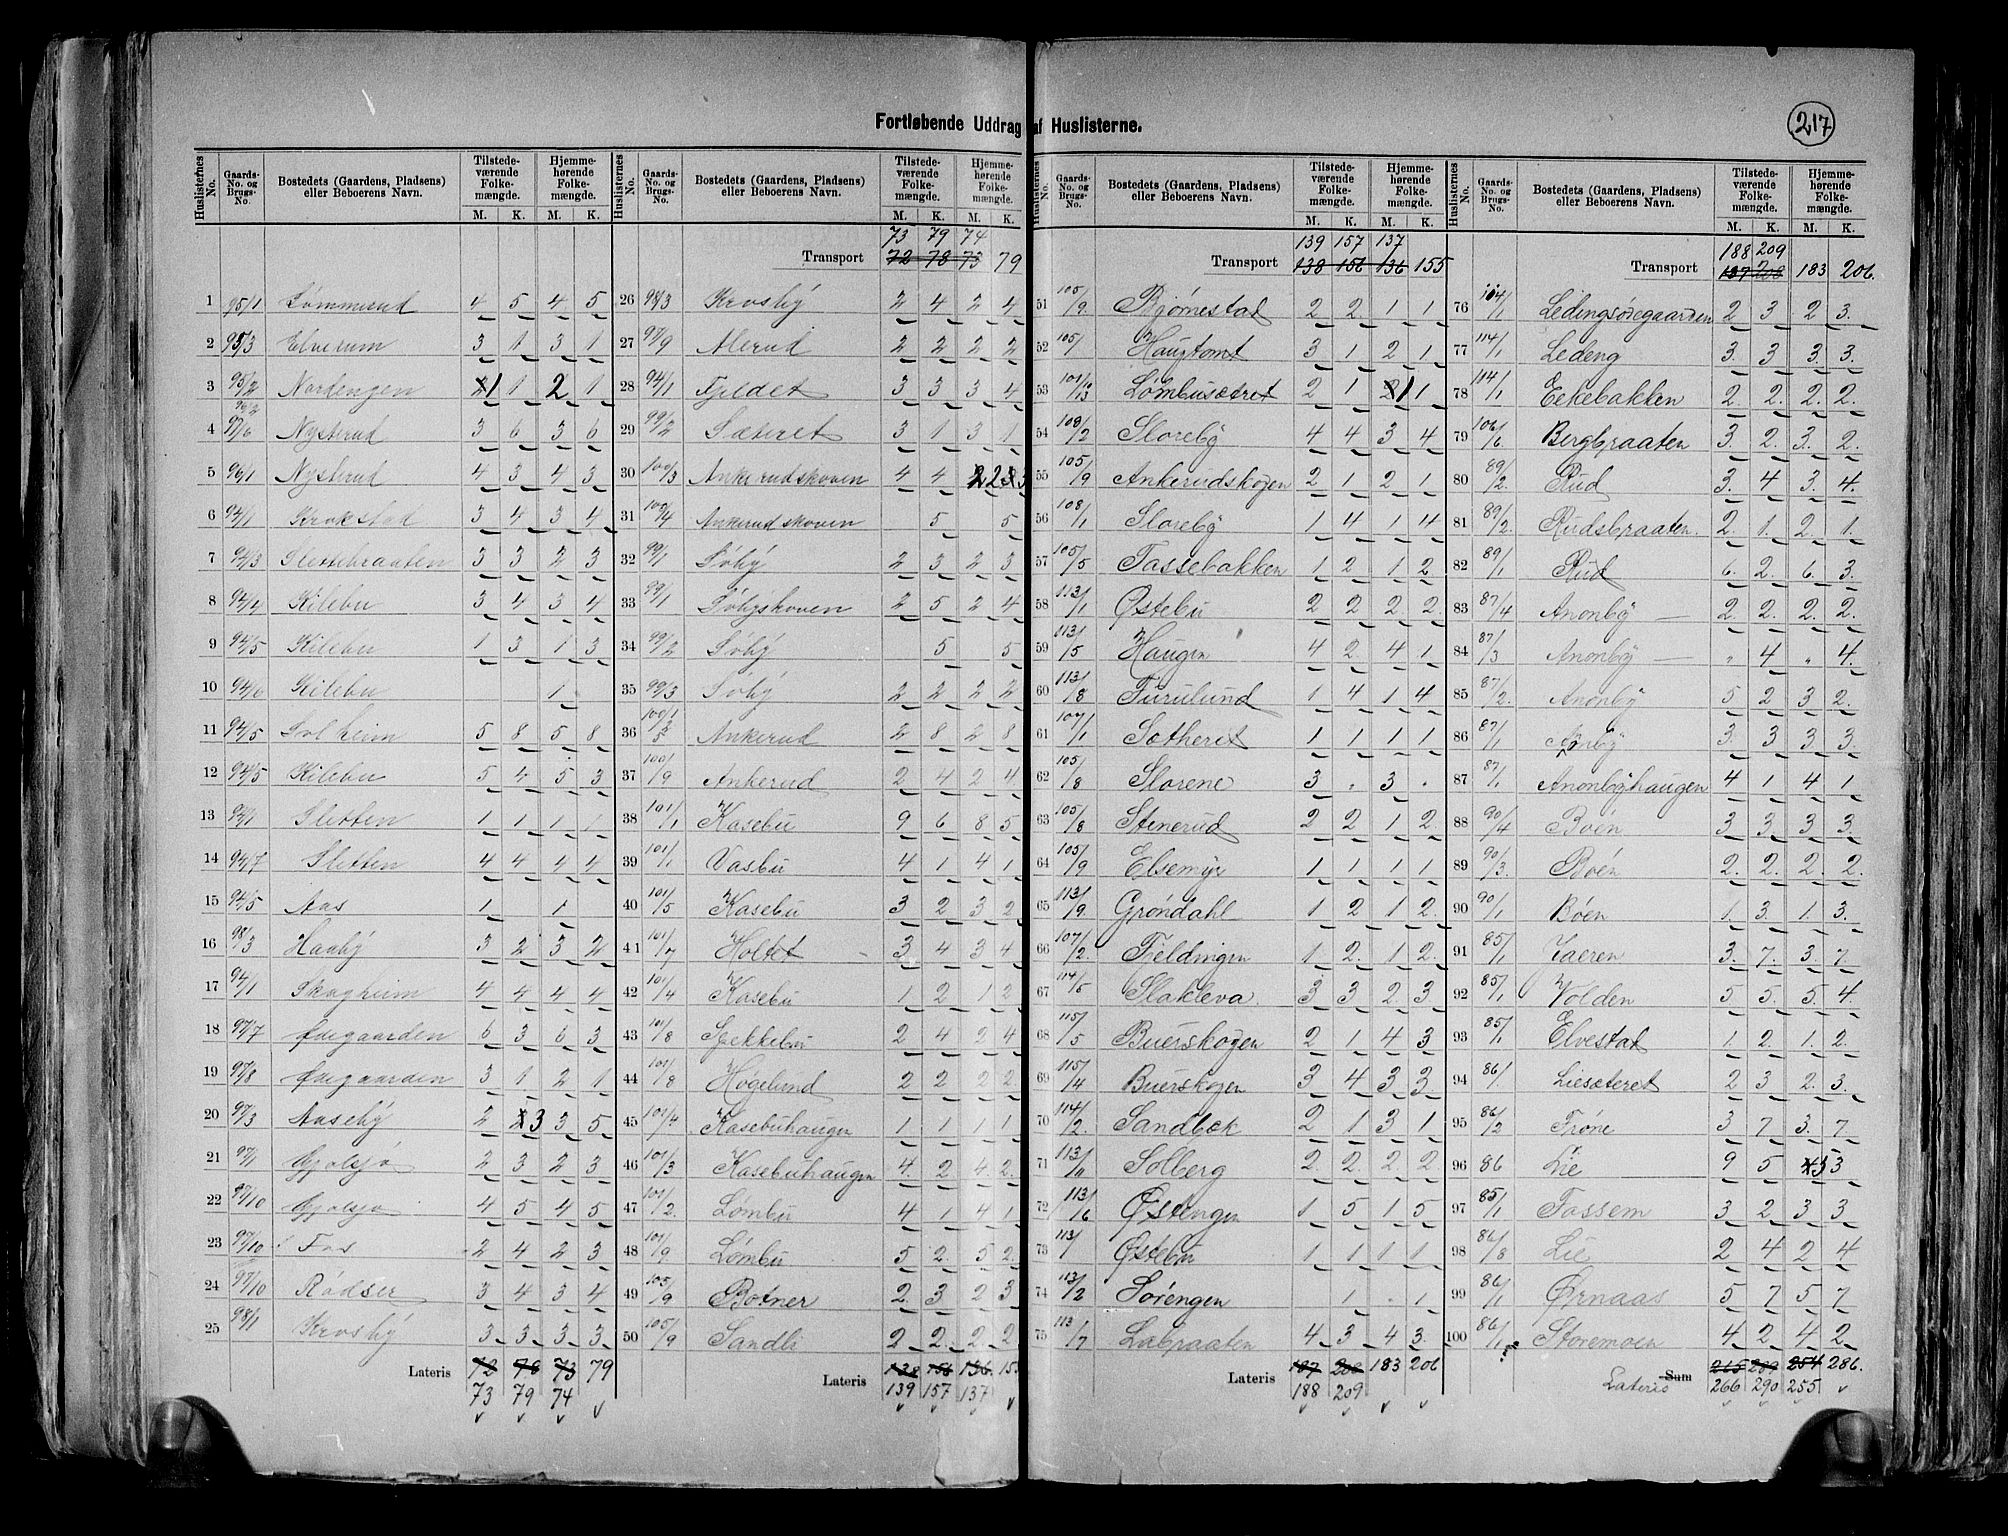 217
Fortløbende Uddrag af Huslisterne.
Huslisternes No. Gaards-No. og Brugs-No. Bostedets (Gaardens, Pladsens) eller Beboerens Navn. Tilstedeværende Folkemængde. M. K. Hjemmehørende Folkemængde. M. K.
1 95/1 Lømmerud 4 5 4 5
2 95/3 Elverum 3 1 3 1
3 95/2 Nordengen 1 1 2 1
4 97/6 Nysterud 3 6 3 6
5 96/1 Nysterud 4 3 4 3
6 94/1 Krokstad 3 4 3 4
7 94/3 Slettebraaten 3 3 2 3
8 94/4 Kilebu 3 4 3 4
9 94/5 Kilebu 1 3 1 3
10 94/6 Kilebu 1
11 94/5 Solheim 5 8 5 8
12 94/5 Kilebu 5 4 5 3
13 94/1 Sletten 1 1 1 1
14 94/7 Sletten 4 4 4 4
15 94/5 Aas 1 1
16 98/3 Haaby 3 2 3 2
17 94/1 Skogheim 4 4 4 4
18 97/7 Øegaarden 6 3 6 3
19 97/8 Øegaarden 3 1 2 1
20 97/3 Aaseby 2 3 3 5
21 97/1 Gjølsjø 2 3 2 3
22 97/10 Gjølsjø 4 5 4 5
23 97/10 Fos 2 4 2 3
24 97/10 Rødser 3 4 3 4
25 98/1 Krosby 3 3 3 3
Lateris 72 78 73 79
73 79 74
73 79 74
Transport 72 78 73 79
26 98/3 Krosby 2 4 2 4
27 97/9 Alerud 2 2 2 2
28 94/1 Fjeldet 3 3 3 4
29 99/2 Sæteret 3 1 3 1
30 100/3 Ankerudskoven 4 4 2 3
31 100/4 Ankerudskoven 5 5
32 99/1 Søby 2 3 2 3
33 99/1 Søbyskoven 2 5 2 4
34 99/2 Søby 5 5
35 99/3 Søby 2 2 2 2
36 100/1 Ankerud 2 8 2 8
37 100/9 Ankerud 2 4 2 4
38 101/1 Kasebu 9 6 8 5
39 101/1 Vasbu 4 1 4 1
40 101/5 Kasebu 3 2 3 2
41 101/7 Holtet 3 4 3 4
42 101/4 Kasebu 1 2 1 2
43 101/8 Spekkebu 2 4 2 4
44 101/8 Høgelund 2 2 2 2
45 101/4 Kasebuhaugen 1 1 1 1
46 101/3 Kasebuhaugen 4 2 4 2
47 101/2 Lømbu 4 1 4 1
48 101/9 Lømbu 5 2 5 2
49 105/9 Botner 2 3 2 3
50 105/9 Sandli 2 2 2 2
Lateris 138 156 136
139 157 137
139 157 137
Transport 138 156 136 155
51 105/9 Bjørnestad 2 2 1 1
52 105/1 Haugtomt 3 1 2 1
53 Lømbusæteret 2 1 1 1
54 108/2 Sloreby 4 4 3 4
55 105/9 Ankerudskogen 2 1 2 1
56 108/1 Sloreby 1 4 1 4
57 105/5 Tassebakken 1 2 1 2
58 113/1 Østebu 2 2 2 2
59 113/5 Haugen 4 2 4 1
60 113/8 Furulund 1 4 1 4
61 107/1 Sætheret 1 1 1 1
62 105/8 Slorene 3 3
63 105/8 Stinerud 2 2 1 2
64 105/9 Elsemyr 1 1 1 1
65 113/9 Grøndahl 1 2 1 2
66 107/2 Fieldingen 1 2 1 2
67 114/5 Slakleva 3 3 2 3
68 115/5 Buerskogen 2 1 4 3
69 115/4 Buerskogen 3 4 3 3
70 114/2 Sandbæk 2 1 3 1
71 113/11 Solberg 2 2 2 2
72 113/16 Østengen 1 5 1 5
73 113/1 Østebu 1 1 1 1
74 113/2 Sørengen 1 1 1
75 113/7 Labraaten 4 3 4 3
Lateris 187 208 183 206
188 209
188 209
Transport 187 208 183 206.
76 104/1 Ledingsødegaarden 2 3 2 3
77 114/1 Ledeng 3 3 3 3
78 114/1 Eekebakken 2 2 2 2
79 106/6 Bergbraaten 3 2 3 2
80 89/2 Rud 3 4 3 4
81 89/2 Rudsbraaten 2 1 2 1
82 89/1 Rud 6 2 6 3
83 87/4 Anonby 2 2 2 2
84 87/3 Anonby " 4 " 4
85 87/2 Anonby 5 2 3 2
86 87/1 Anby 3 3 3 3
87 87/1 Anonbyhaugen 4 1 4 1
88 90/4 Boén 3 3 3 3
89 90/3 Bøén 2 2 2 2
90 90/1 Bøen 1 3 1 3
91 85/1 Vaeren 3 7 3 7
92 85/1 Volden 5 5 5 4
93 85/1 Elvestad 1 2 1 2
94 86/1 Liesæteret 2 3 2 3
95 86/2 Frøne 3 7 3 7
96 86 Lie 9 5 5 3
97 85/1 Fossem 3 2 3 3
98 86/8 Lie 2 4 2 4
99 86/1 Ørnaas 5 7 5 7
100 86/1 Storemoen 4 2 4 2
Sum 265 289 254 286.
Lateris 266 290 255